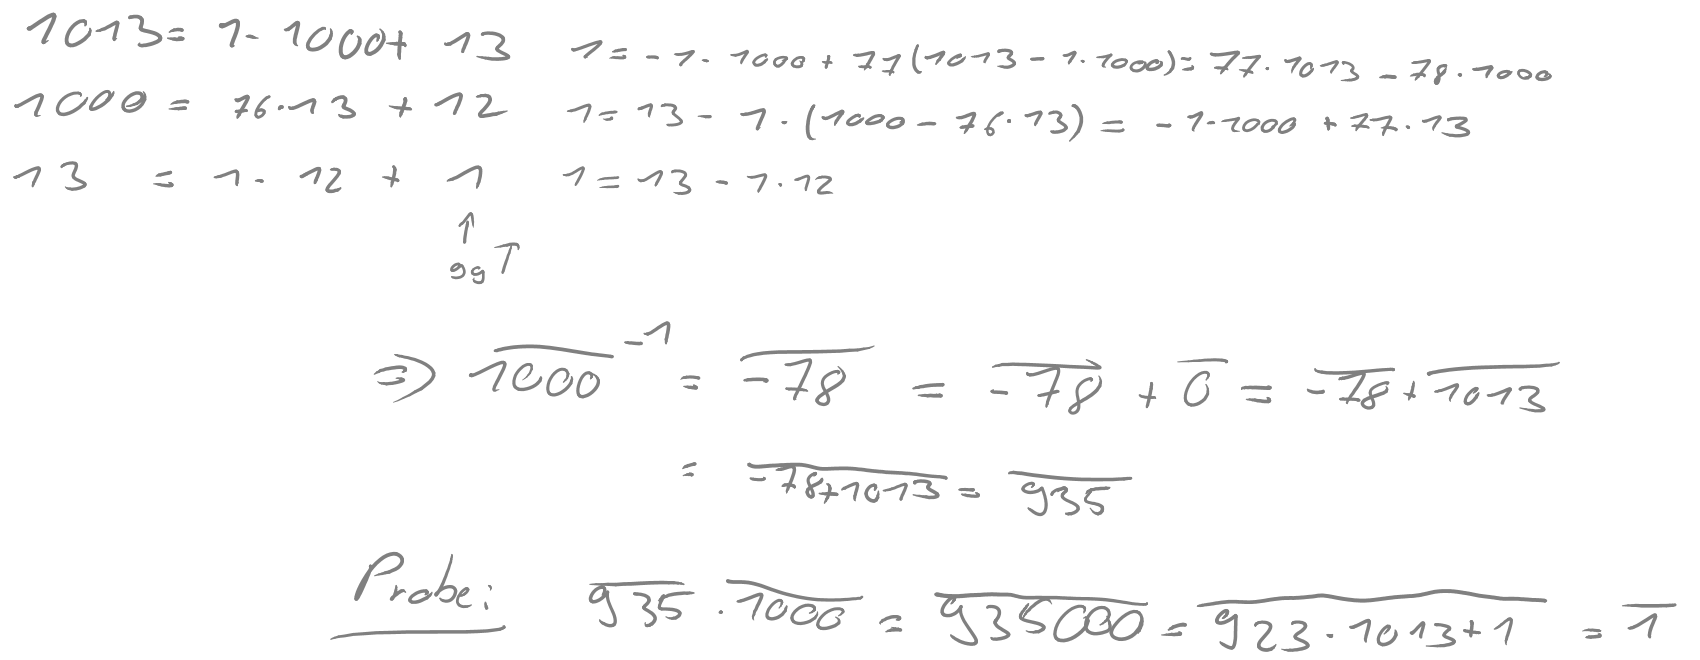 1013 = 1 · 1000 + 13   1 = -1 · 1000 + 77(1013 - 1 · 1000) = 77 · 1013 - 78 · 1000
1000 = 76 · 13 + 12   1 = 13 - 1 · (1000 - 76 · 13) = -1 · 1000 + 77 · 13
13 = 1 · 12 + 1   1 = 13 - 1 · 12
↑
ggT
⇒ \overline{1000}^{-1} = \overline{-78} = \overline{-78} + \overline{0} = \overline{-78} + \overline{1013}
= \overline{-78+1013} = \overline{935}
Probe: \overline{935} · \overline{1000} = \overline{935000} = \overline{923 · 1013 + 1} = \overline{1}